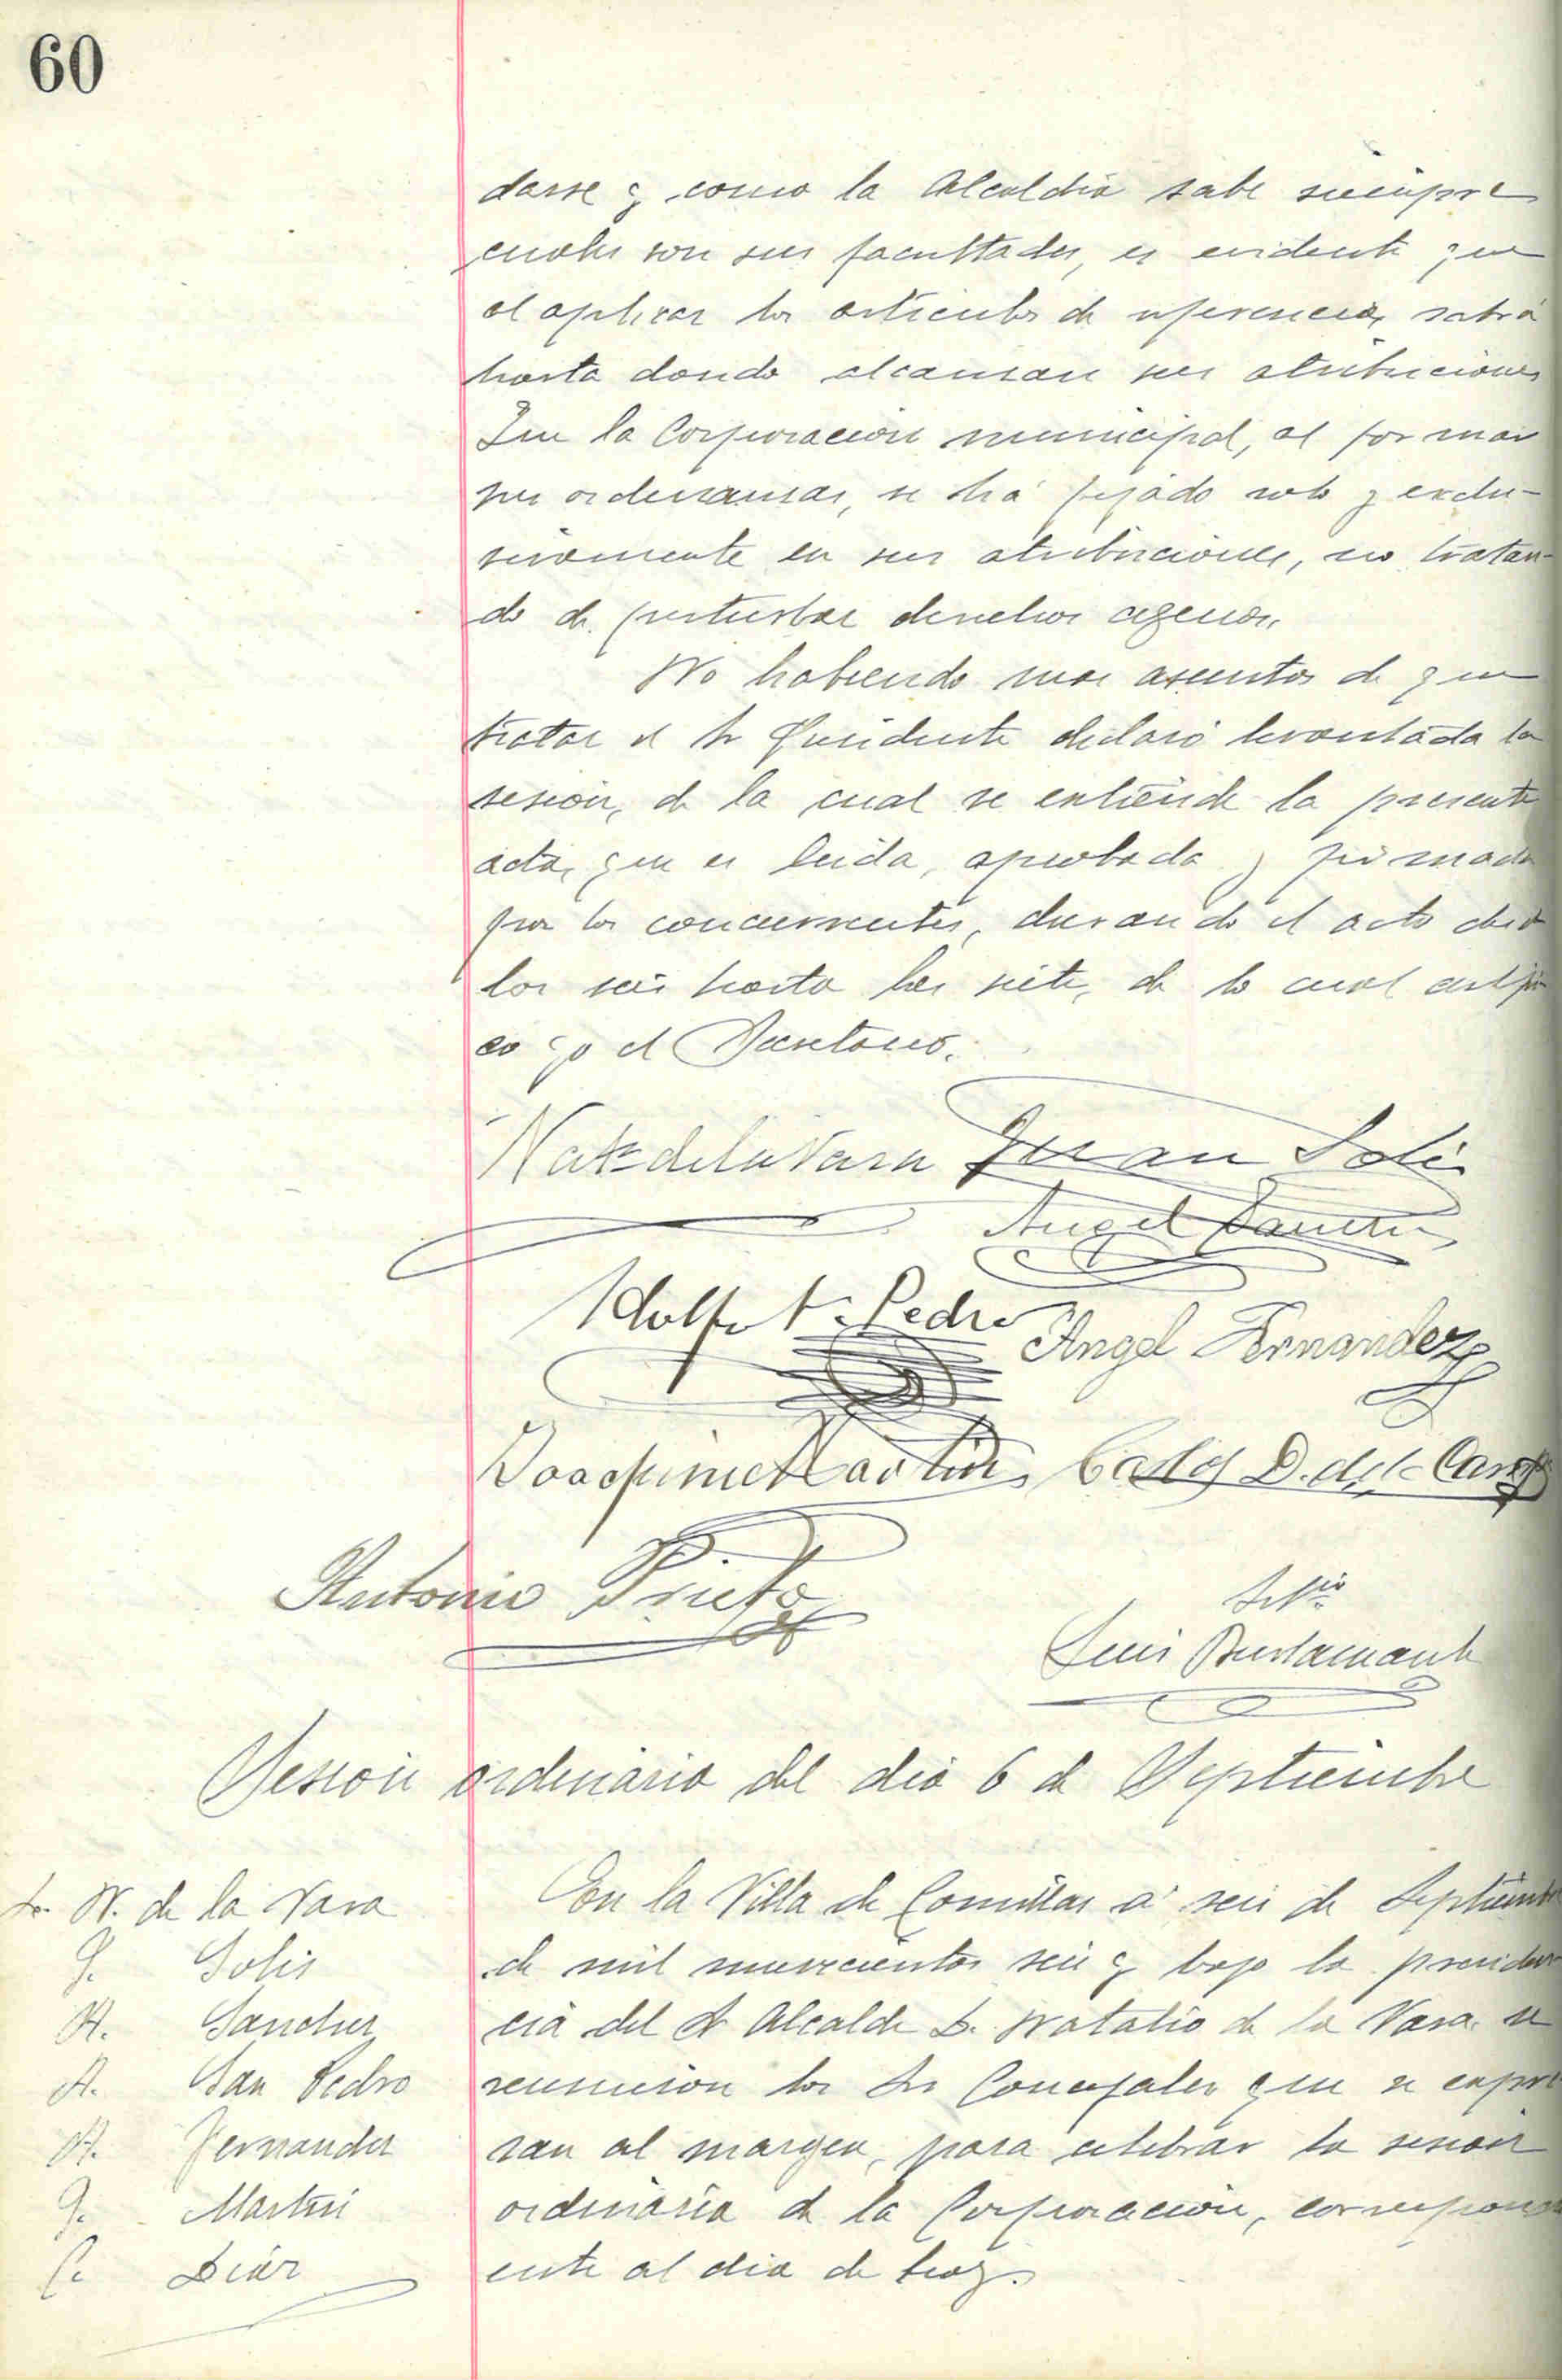 60
darse y como la Alcaldia sabe siempre
cuales son sus facultades, es evidente que
al aplicar los articulos de referencia, sabrá
hasta donde alcanzan sus atribuciones
Que la Corporacion municipal, al formar
sus ordenanzas, se há fijado solo y exclu-
sivamente en sus atribuciones, no tratan-
do de perturbar derechos agenos.
No habiendo mas asuntos de que
tratar el Sr Presidente declaró levantada la
sesion, de la cual se extiende la presente
acta, que es leida, aprobada y firmada
por los concurrentes, durando el acto desde
las seis hasta las siete, de lo cual certifi
co yo el Secretario.
Nat de la Vara Juan Solis
Angel Sanchez
Adolfo S. Pedro
Angel Fernandez
Joaquin Martin Carlos D. de la Campa
Antonio Prieto
Srio
Luis Bustamante
Sesion ordinaria del dia 6 de Septiembre
Sr. N. de la Vara
J. Solis
A. Sanchez
A. San Pedro
A. Fernandez
J. Martin
C. Diaz
En la Villa de Comillas á seis de Septiembre
de mil novecientos seis y bajo la presiden
cia del Sr Alcalde D. Natalio de la Vara, se
reunieron los Srs Concejales que se expre
san al margen, para celebrar la sesion
ordinaria de la Corporacion, correspondi
ente al dia de hoy.